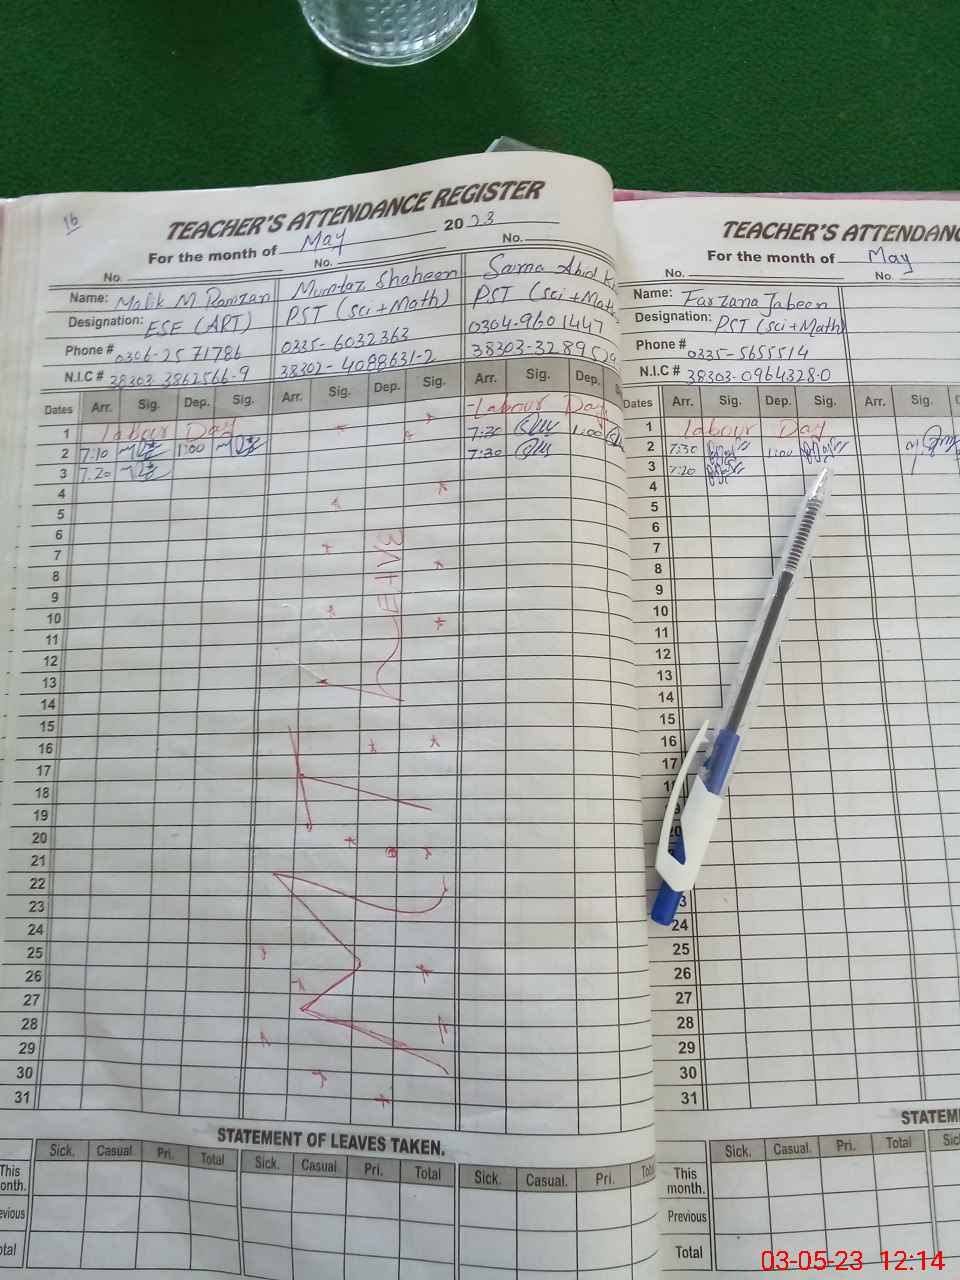 16
TEACHER'S ATTENDANCE REGISTER
For the month of May 2023
No. No. No.
Name: Malik M Ramzan Mumtaz Shaheen Saima Abid
Designation: ESE (ART) PST (sci+Math) PST (sci+Math
Phone # 0306-2571786 0335-6032363 0304-9601447
N.I.C # 38303-3862566-9 38302-4088631-2 38303-328952
Dates Arr. Sig. Dep. Sig. Arr. Sig. Dep. Sig. Arr. Sig. Dep.
1 Labour Day Labour Day
2 7:10 1:00 7:30 1:00
3 7.20 7:30
4
5
6
7
8
9
10
11
12
13
14
15
16
17
18
19
20
21
22
23
24
25
26
27
28
29
30
31
STATEMENT OF LEAVES TAKEN.
Sick. Casual Pri. Total Sick. Casual. Pri. Total Sick. Casual. Pri. Total
This month.
Previous
Total
TEACHER'S ATTENDANC
For the month of May
No. No.
Name: Farzana Jabeen
Designation: PST (sci+Math)
Phone # 0335-5655514
N.I.C # 38303-0964328-0
Dates Arr. Sig. Dep. Sig. Arr. Sig.
1 Labour Day
2 7:30 1:00
3 7:20
4
5
6
7
8
9
10
11
12
13
14
15
16
17
18
19
20
23
24
25
26
27
28
29
30
31
STATEM
Sick. Casual. Pri. Total Sic
This month.
Previous
Total
03-05-23 12:14